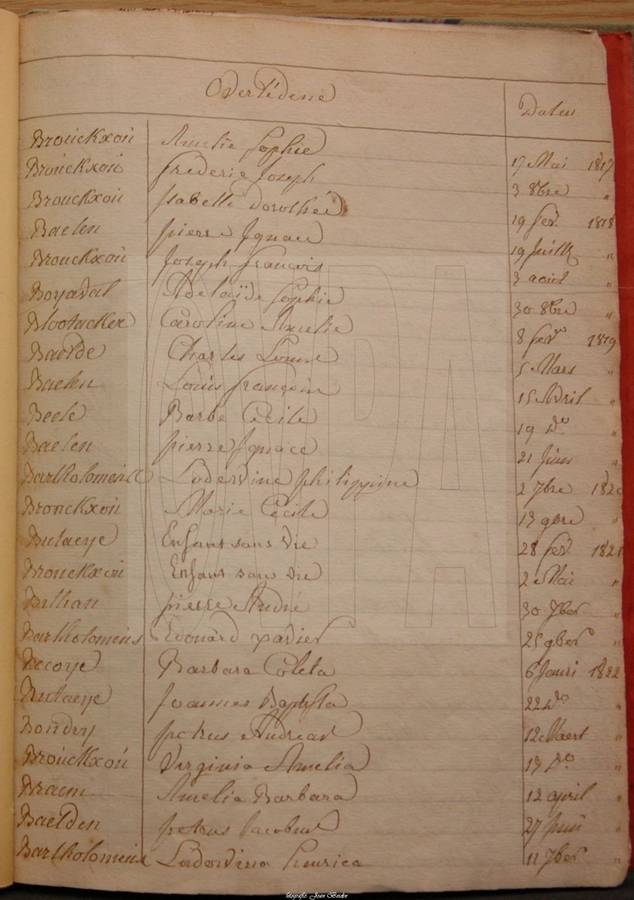 Overledene Daten
Brouckxon Amelie Sophie 17 Mai 1817
Brouckxon frederic Joseph 3 8bre "
Brouckxon Isabelle Dorothée 19 fev. 1818
Baelen pierre Ignace 19 Juillt "
Brouckxon Joseph francois 3 août "
Boyaval Adelaïde Sophie 30 8bre "
Blootacker Caroline Amelie 8 fevr 1819
Baerde Charles Louis 5 Mars "
Baelen Louis francois 15 Avril "
Beele Barbe Cecile 19 do "
Baelen pierre Ignace 21 Juin "
Bartholomeus Lodevine philippine 2 7bre 1820
Bronckxon Marie Cecile 13 9bre "
Butaeye Enfant sans vie 28 fev. 1821
Bronckxon Enfant sans vie 2 Mai "
Billiau pierre André 30 7ber "
Bartholomeus Edouard xavier 25 9ber "
Decoye Barbara Coleta 6 Janri 1822
Butaeye Joannes Baptista 22 do "
Boudry petrus Andreas 12 Maert "
Brouckxon Virginia Amelia 13 do "
Braem Amelia Barbara 12 april "
Baelden petrus Jacobus 27 Juni "
Bartholomeus Ludovina henrica 11 7ber "
ONPA
fotografie: Joan Beeke